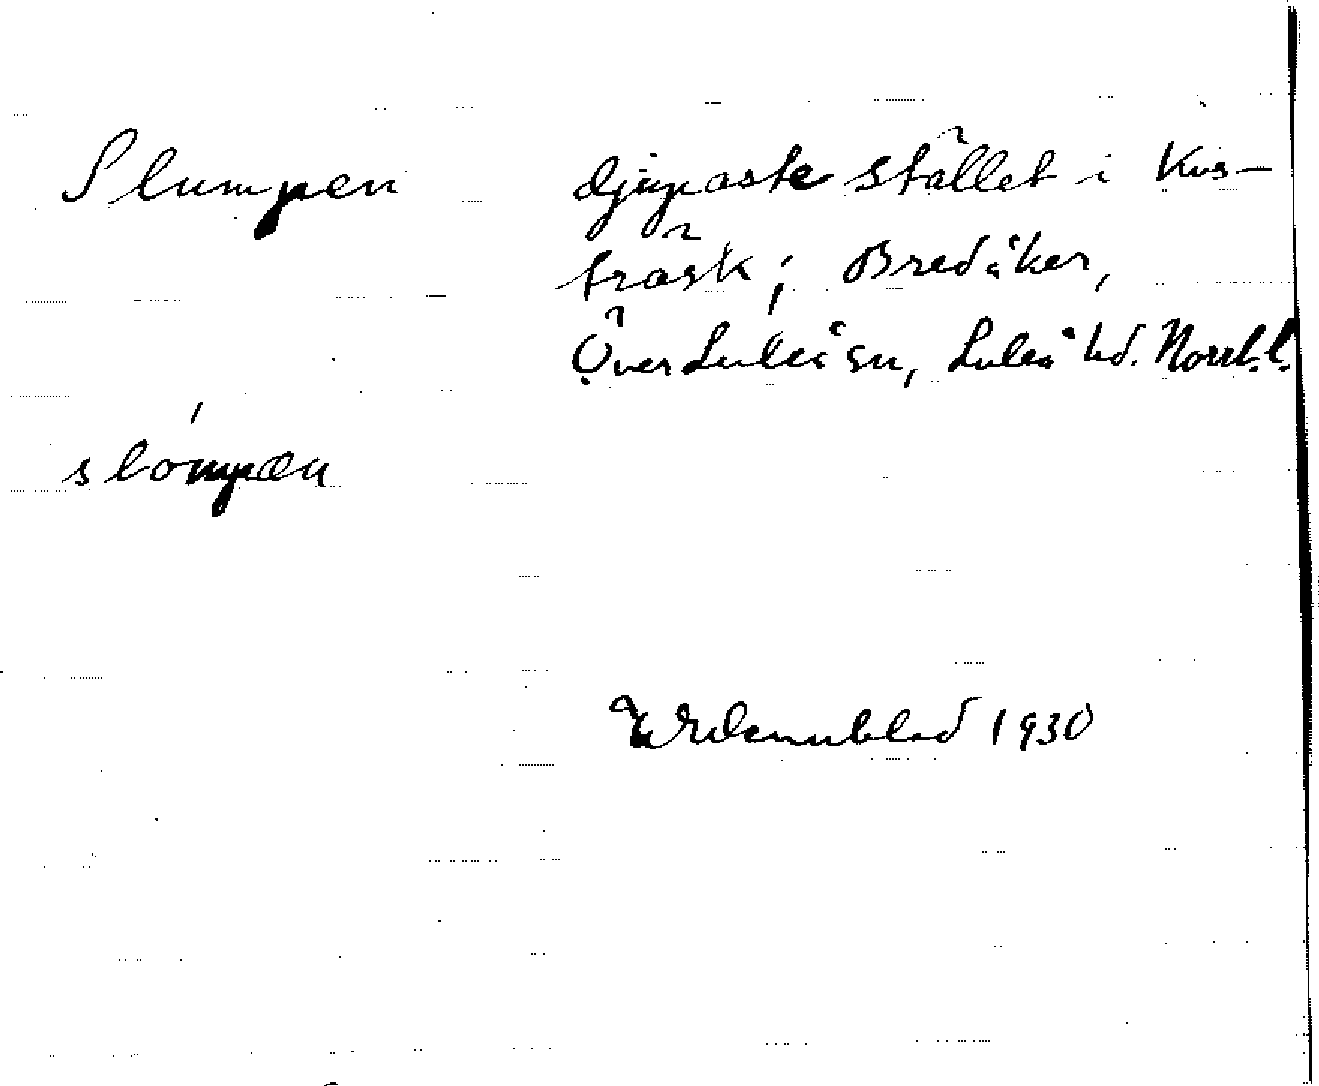 Slumpen
djupaste stället i Kus-
träsk; Bredåker,
Överluleå sn, Luleå hd. Norrb.l.
slómpæn
Wdennblad 1930